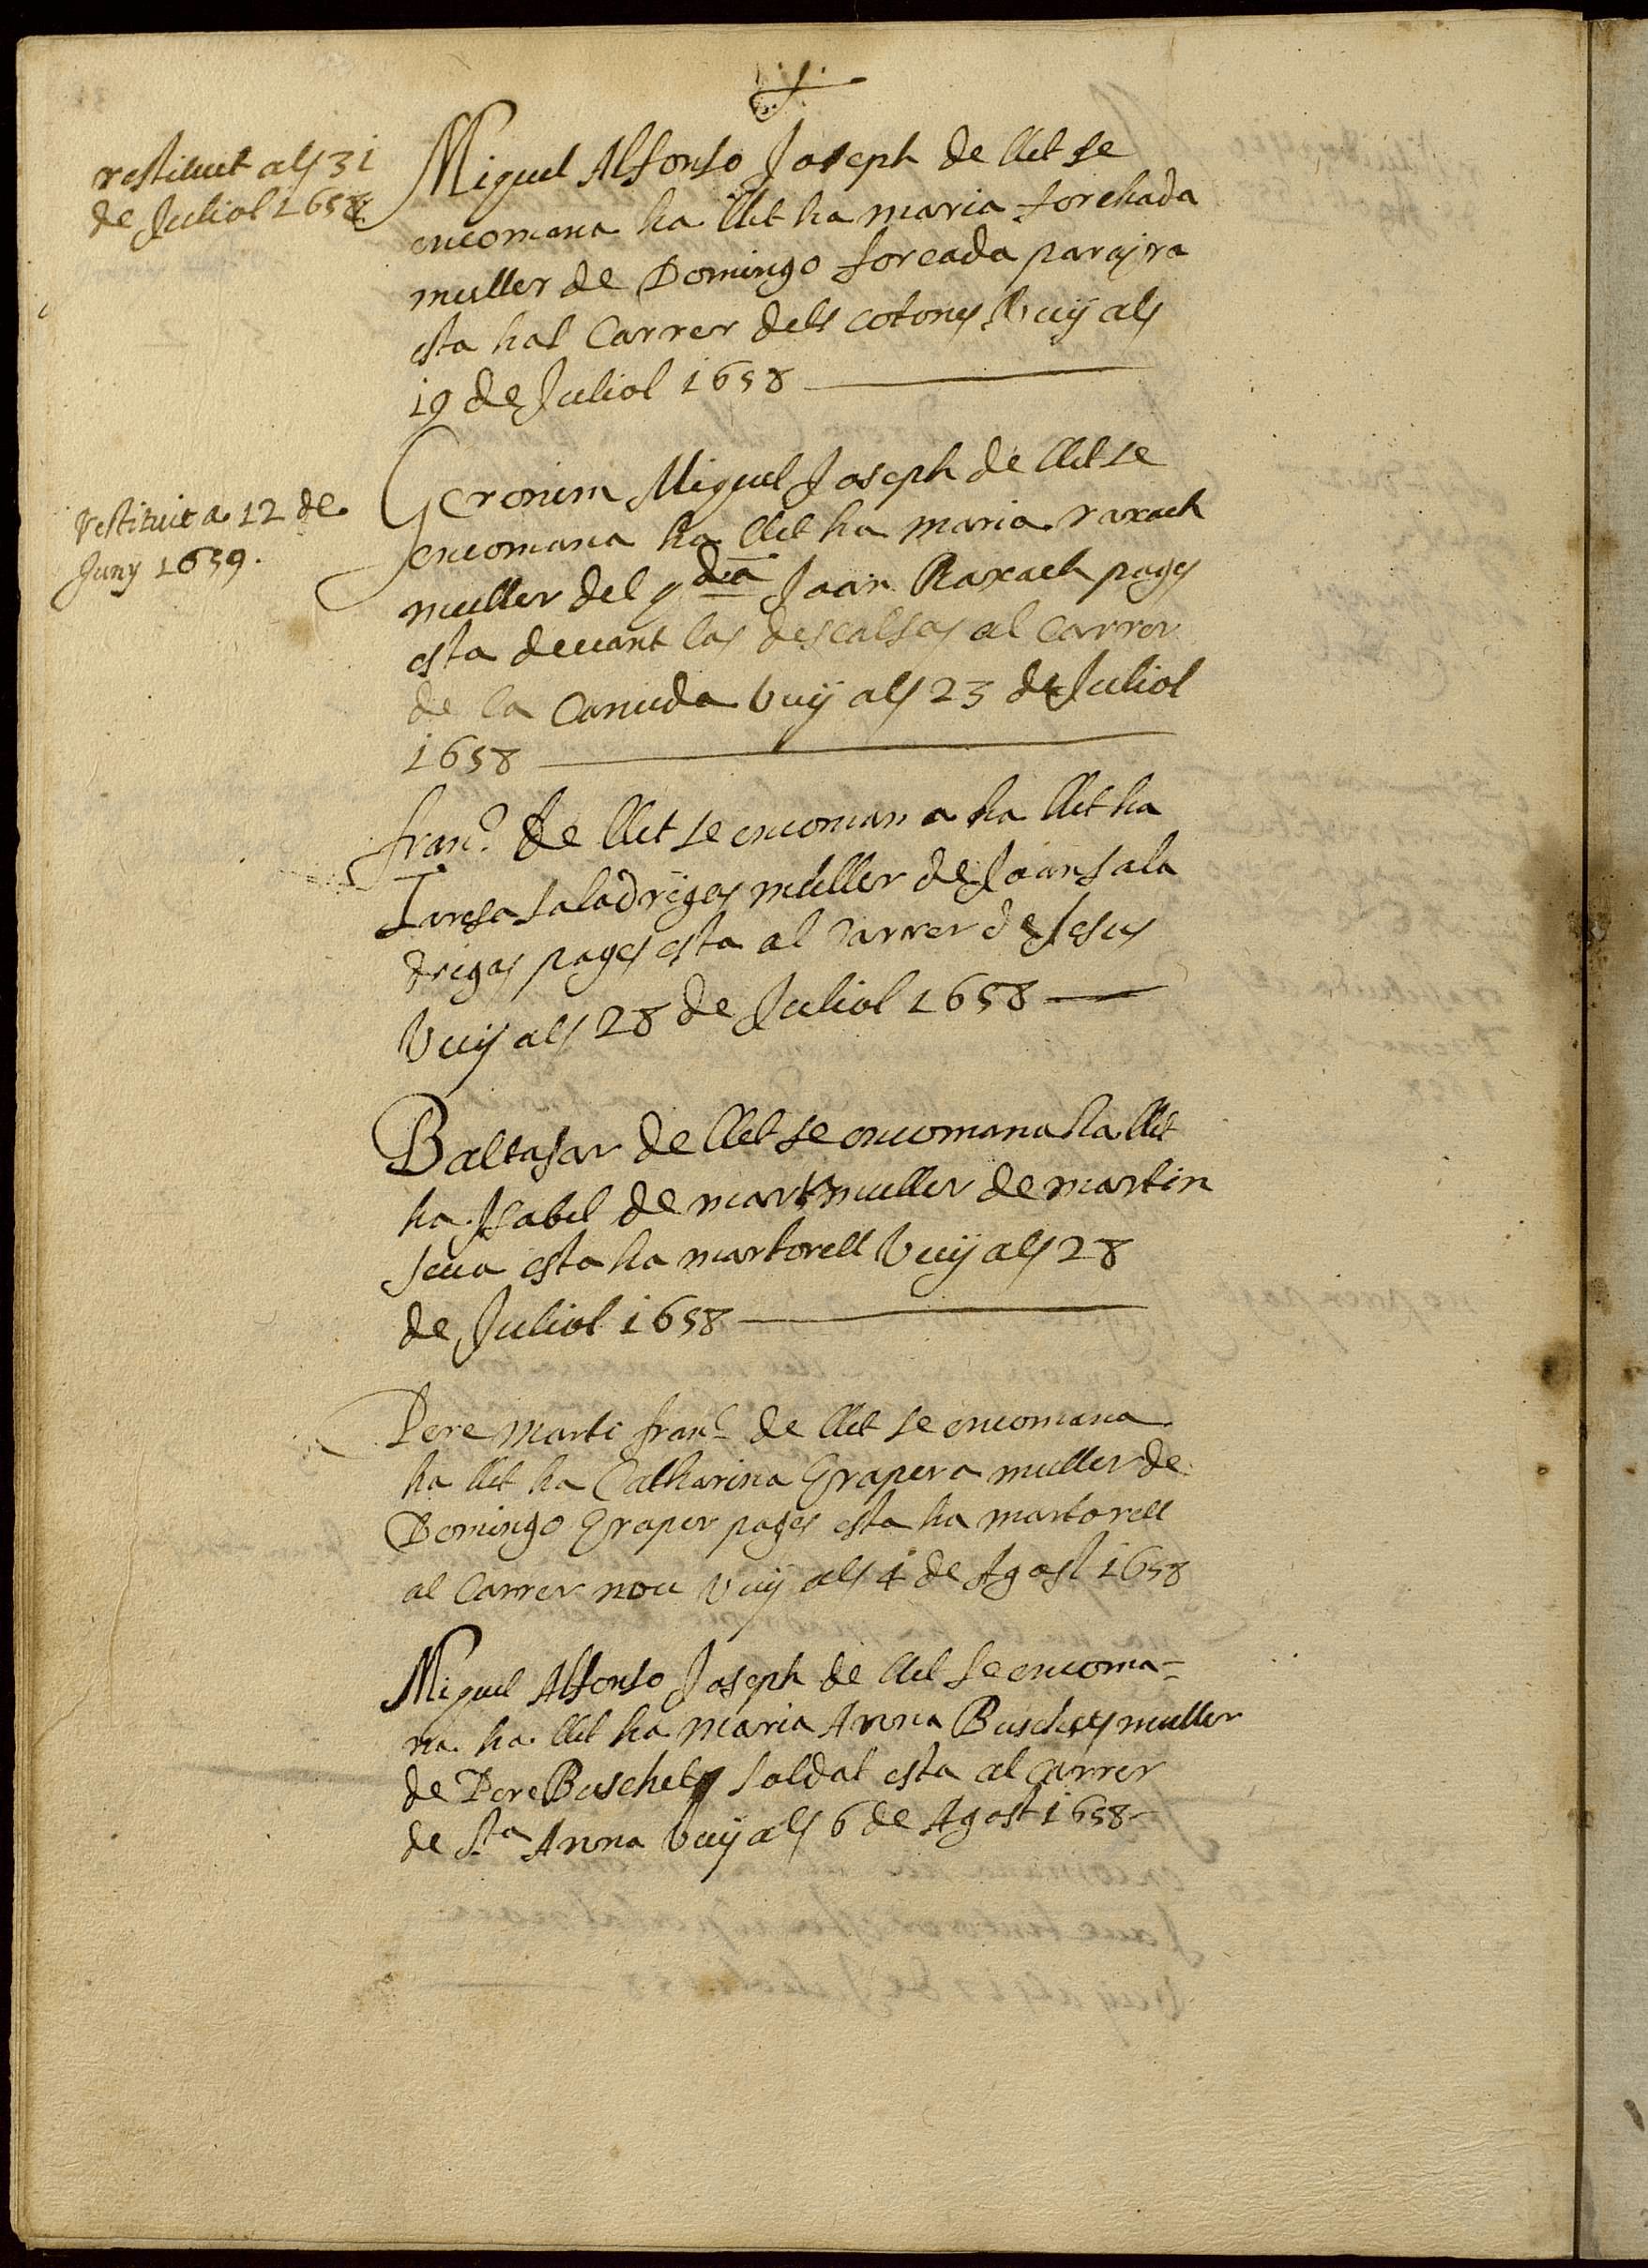 restituit als 31
de Juliol 1658
Miguel Alfonso Joseph de llet se
encomana ha llet ha maria forchada
muller de Domingo forcada parayra
esta hal Carrer dels cotoners Vuy als
19 de Juliol 1658
restituit a 12 de
Juny 1659.
Geronim Miguel Joseph de llet se
encomana ha llet ha maria raxach
muller del qº dia Joan Raxach pages
esta devant las descalsas al Carrer
de la Canuda Vuy als 23 de Juliol
1658
franº de llet se encomana ha llet ha
Taresa saladrigas muller de Joan sala
drigas pages esta al Carrer de Jesus
Vuy als 28 de Juliol 1658
Baltasar de llet se encomana ha llet
ha Isabel de martimuller de martin
seua esta ha martorell Vuy als 28
de Juliol 1658
Pere marti franº de llet se encomana
ha llet ha Catharina Grapera muller de
Domingo Graper pages esta ha martorell
al Carrer nou Vuy als 4 de Agost 1658
Miguel Alfonso Joseph de llet se encoma=
na ha llet ha maria Anna Buschets muller
de Pere Buschets soldat esta al Carrer
de Sta Anna Vuy als 6 de Agost 1658